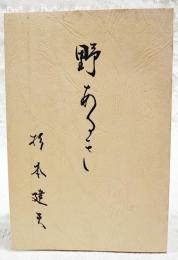 野あるき
杉本建夫